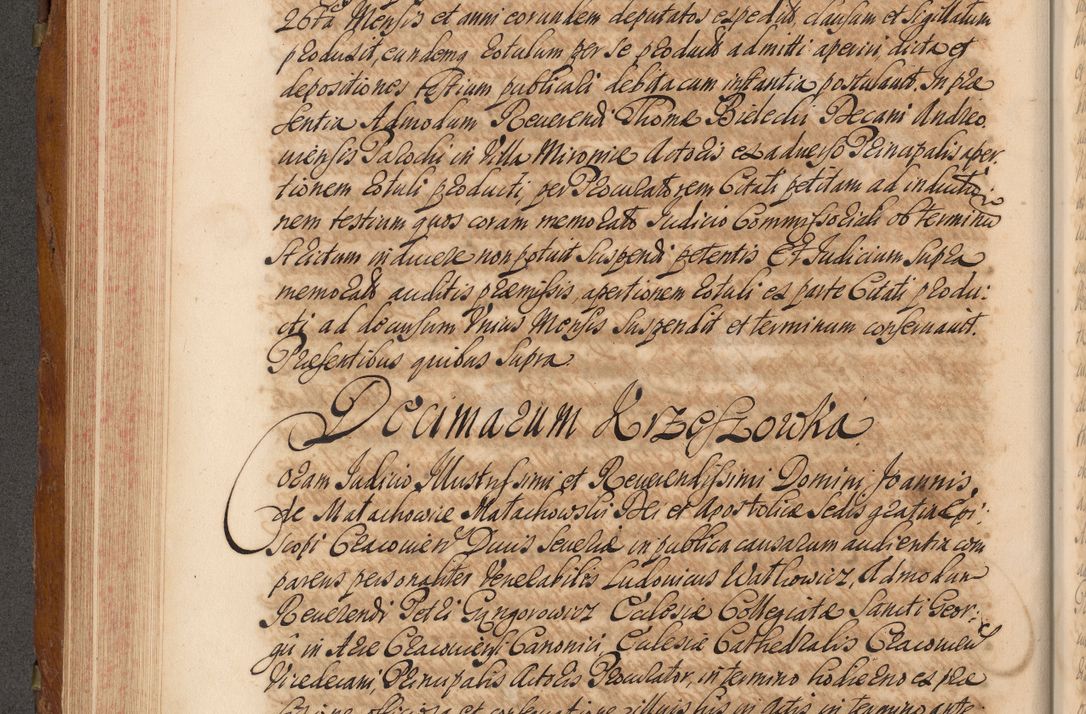 26ta Mensis et anni eorundem deputatos expedit clausum et Sigillatum
produxit, eundemq Rotulum per se product admitti aperiri, dicta et
depositiones testium publicari debita cum instantia postulavit. In præ
sentia Admodum Reverendi Thomæ Bielecki Decani Andreo
viensis Parochi in Villa Mironice Actoris ex adverso Principalis aper
tionem Rotuli producti per Procuratorem Citati petitam ad inductio
nem testium quos coram memorato Judicio Commissoriali ob terminu
Strictum inducere non potuit Suspendi petentis Et Judicium Supra
memorato auditis præmissis, apertionem Rotuli ex parte Citati produ:
cti ad decursum Unius Mensis Suspendit et terminum conservavit.
Præsentibus quibus Supra
Decimarum Krzeszowska
Coram Judicio Illustrissimi et Reverendissimi Domini Joannis
de Małachowice Małachowski Dei et Apostolicæ Sedis gratia Epi:
Scopi Cracovien Ducis Severiæ in publica causarum audientia com
parens personaliter Venerabilis Ludovicus Watkowicz, Admodum
Reverendi Petri Gyngorowicz Ecclesiæ Collegiatæ Sancti Geor:
gii in Arce Cracoviensi Canonici, Ecclesiæ Cathedralis Cracovien
Vicedecani, Principalis Actoris Procurator, in termino hodierno ex præ